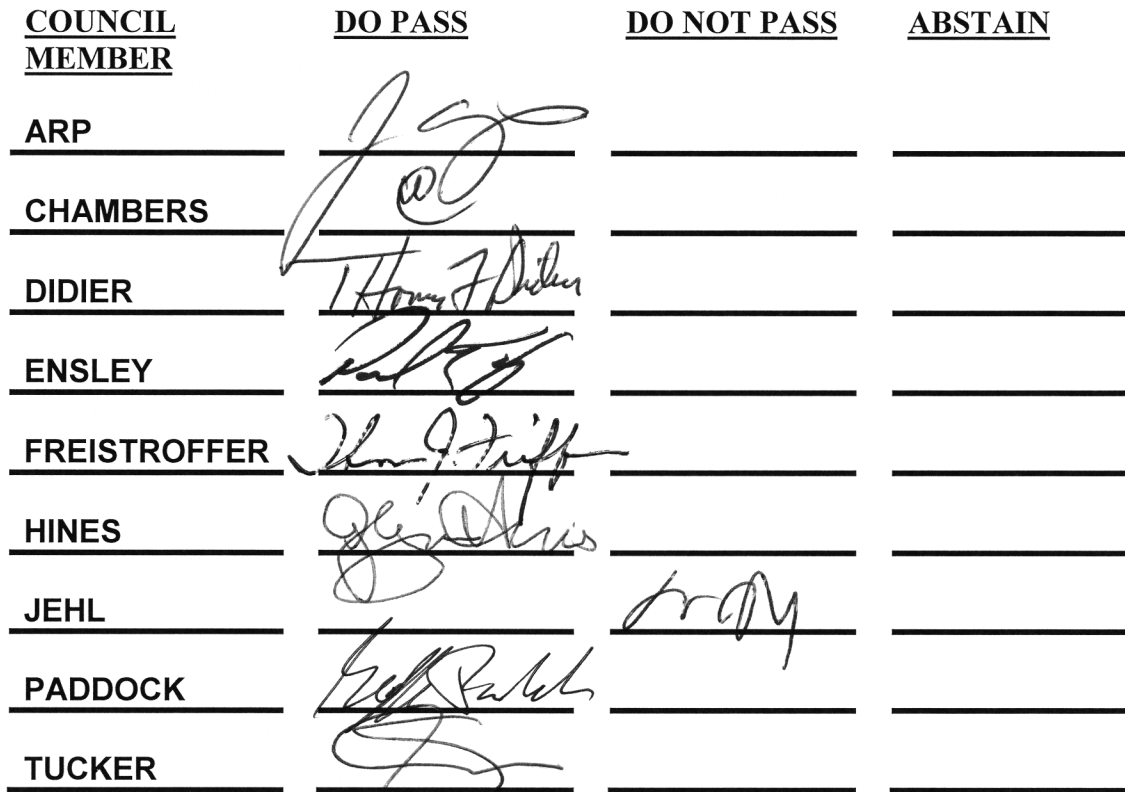 COUNCIL MEMBER DO PASS DO NOT PASS ABSTAIN
ARP
CHAMBERS
DIDIER Thomas F Didier
ENSLEY
FREISTROFFER
HINES Glynn A Hines
JEHL
PADDOCK Geoff Paddock
TUCKER